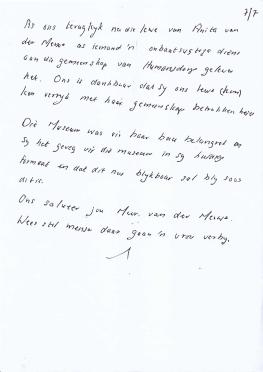 7/7
As ons terugkyk na die lewe van Anita van
der Merwe as iemand 'n onbaatsugtige diens
aan die gemeenskap van Humansdorp gelewer
het. Ons is dankbaar dat sy ons lewe (kom)
kon verryk met haar gemeenskap betrokken heid
Die Museum was vir haar baie belangrik en
Sy het geveg vir die museum in sy huidige
formaat en dat dit nou blykbaar sal bly soos
dit is.
Ons salueer jou Mev. van der Merwe.
Wees stil mense daar gaan 'n vrou verby.